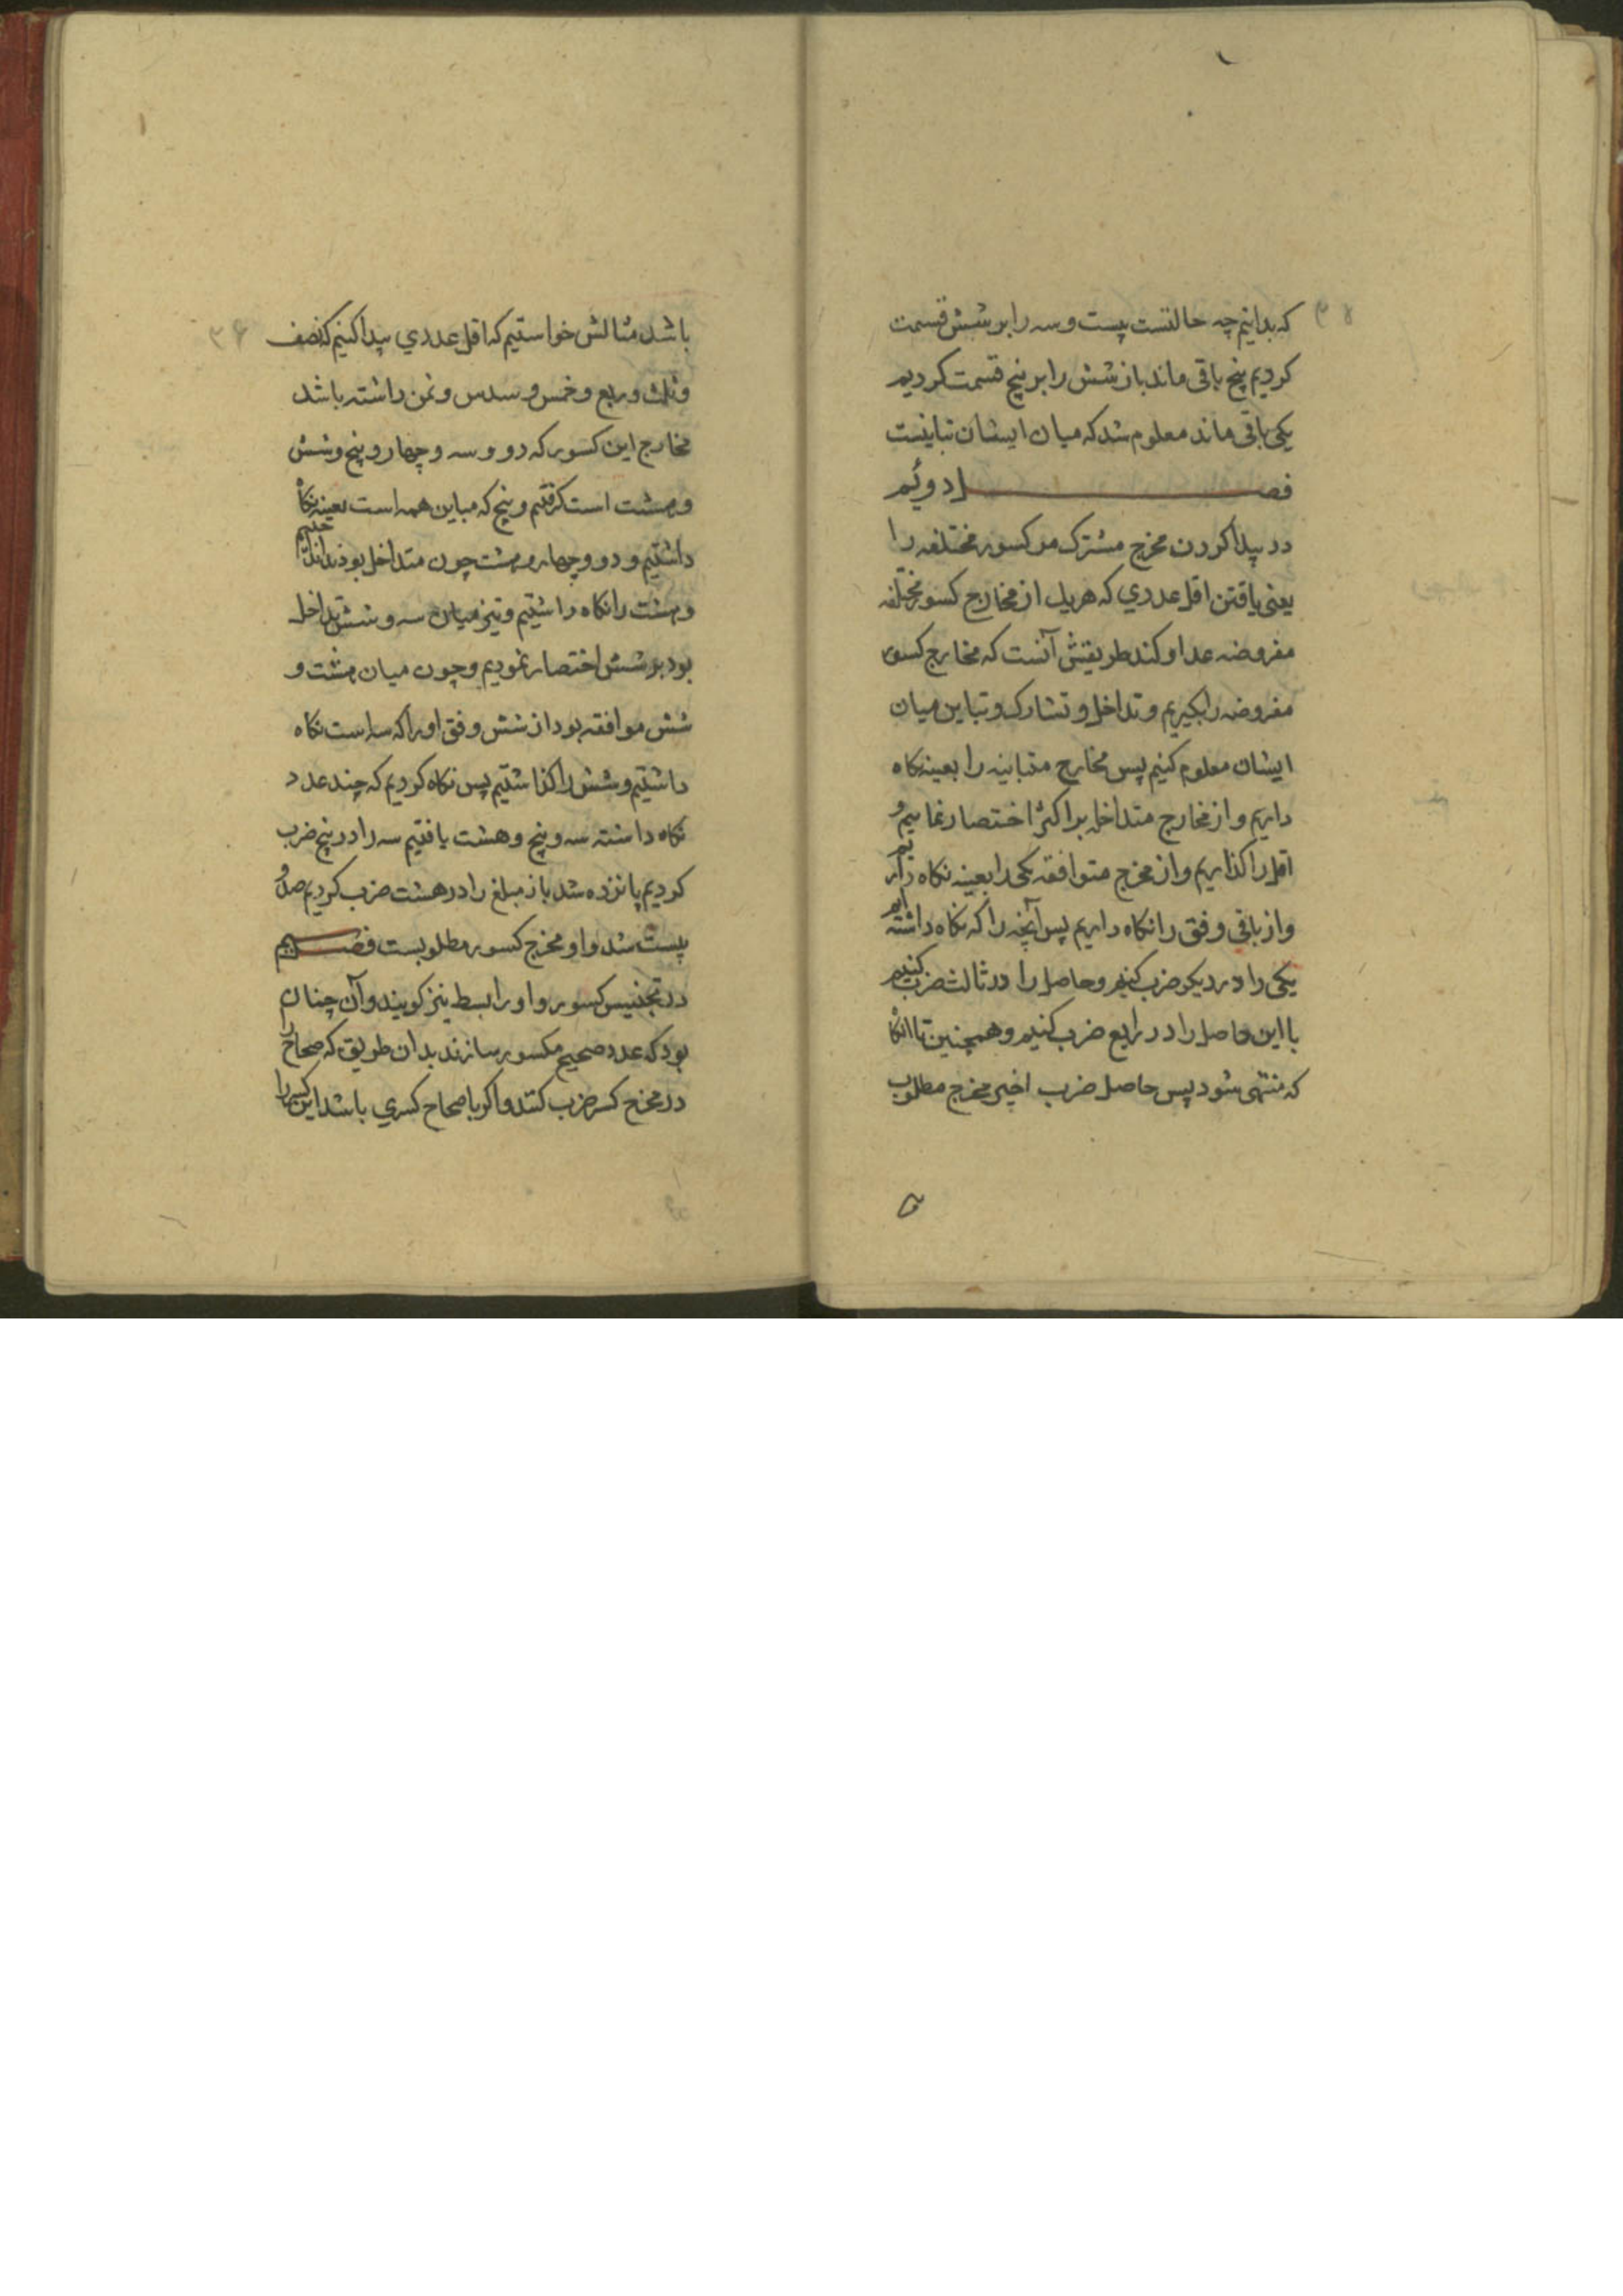 که بدانیم چه حالتست بیست و سه را بر شش قسمت
کردیم پنج باقی ماند باز شش را بر پنج قسمت کردیم
یکی باقی ماند معلوم شد که میان ایشان تباینست
فصل دوئم
در پیدا کردن مخرج مشترک مر کسور مختلفه را
یعنی یافتن اقل عددي که هر یک از مخارج کسور مختلفه
مفروضه عد او کند طریقش آنست که مخارج کسور
مفروضه را بکیریم و تداخل و تشارک و تباین میان
ایشان معلوم کنیم پس مخارج متباینه را بعینه نکاه
داریم و از مخارج متداخل بر اکثر اختصار نماییم و
اقل را کذاریم و از مخرج متوافقه یکی را بعینه نکاه داریم
و از باقی وفق را نکاه داریم پس آنچه را که نکاه داشته ایم
یکی را در دیکر ضرب کنیم و حاصل را در ثالث ضرب کنیم
با این حاصل را در رابع ضرب کنیم و همچنین تا آنکاه
که منتهی شود پس حاصل ضرب اخیر مخرج مطلوب
۳۵
باشد مثالش خواستیم که اقل عددي پیدا کنیم که نصف
و ثلث و ربع و خمس و سدس و ثمن داشته باشد
مخارج این کسور که دو و سه و چهار و پنج و شش
و هشت است کرفتیم و پنج که مباین همه است بعینه نکاه
داشتیم و دو و چهار و هشت چون متداخل بودند انداختیم
و هشت را نکاه داشتیم و نیز میان سه و شش تداخل
بود بر شش اختصار نمودیم و چون میان هشت و
شش موافقه بود از شش وفق او را که سه است نکاه
داشتیم و شش را کذاشتیم پس نکاه کردیم که چند عدد
نکاه داشته سه و پنج و هشت یافتیم سه را در پنج ضرب
کردیم پانزده شد باز مبلغ را در هشت ضرب کردیم صد و
بیست شد و او مخرج کسور مطلوبست فصل سیم
در تجنیس کسور و او را بسط نیز کویند و آن چنان
بود که عدد صحیح مکسور سازند بدان طریق که صحاح را
در مخرج کسر ضرب کنند و اکر با صحاح کسري باشد این کسر را
۳۶